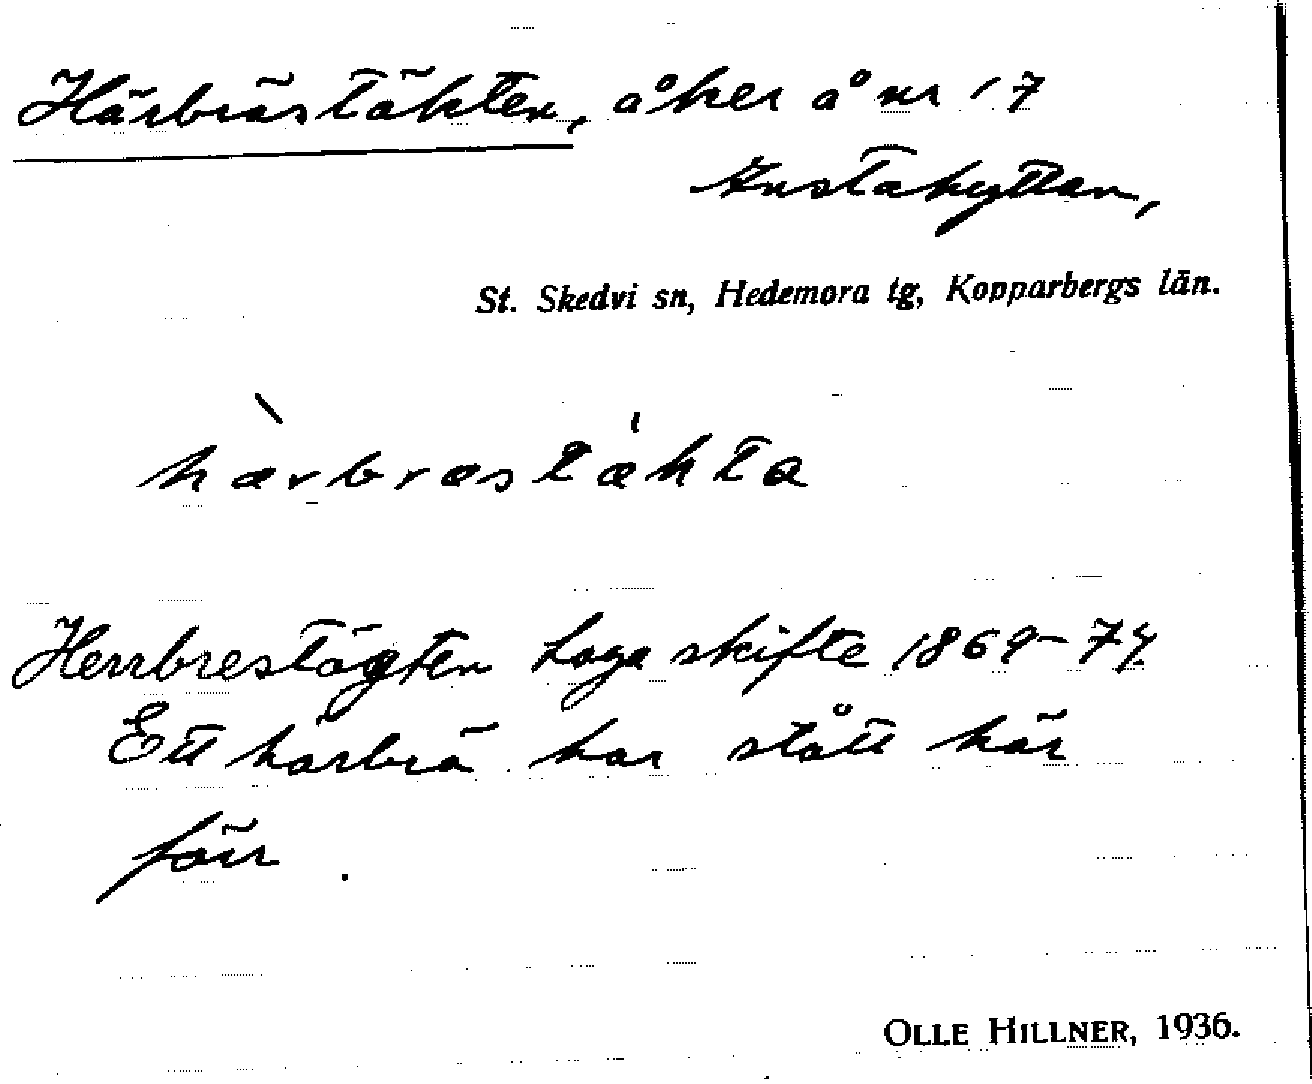 Härbrästäkten, åker å nr 17
Kustahyttan,
St. Skedvi sn, Hedemora tg, Kopparbergs län.
hærbræstækta
Herrbrestägten Laga skifte 1869-74
Ett härbrä har stått här
förr.
OLLE HILLNER, 1936.